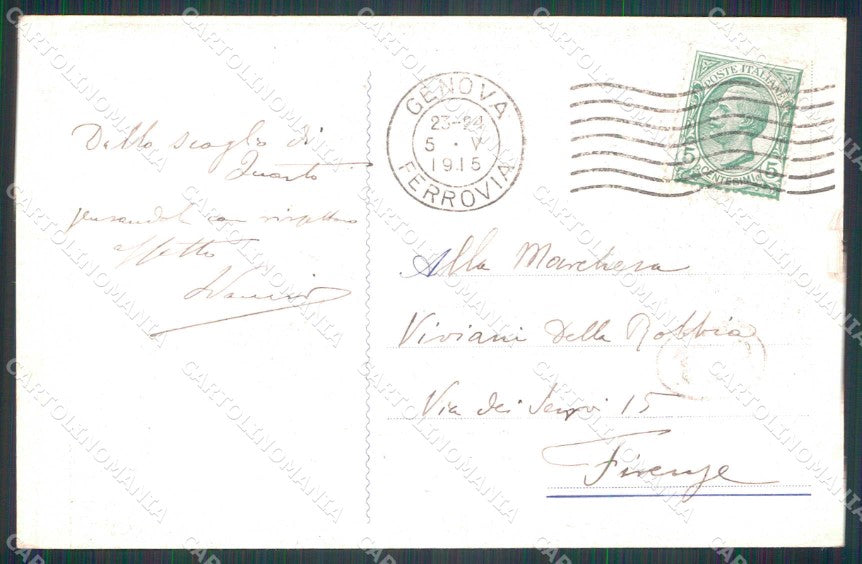 Dallo scoglio di
Quarto
pensandola con rispettoso
affetto
GENOVA
23-24
5 · V
1915
FERROVIA
POSTE ITALIANE
5 5
CENTESIMI
Alla Marchesa
Viviani Della Robbia
Via dei Servi 15
Firenze
CARTOLINOMANIA